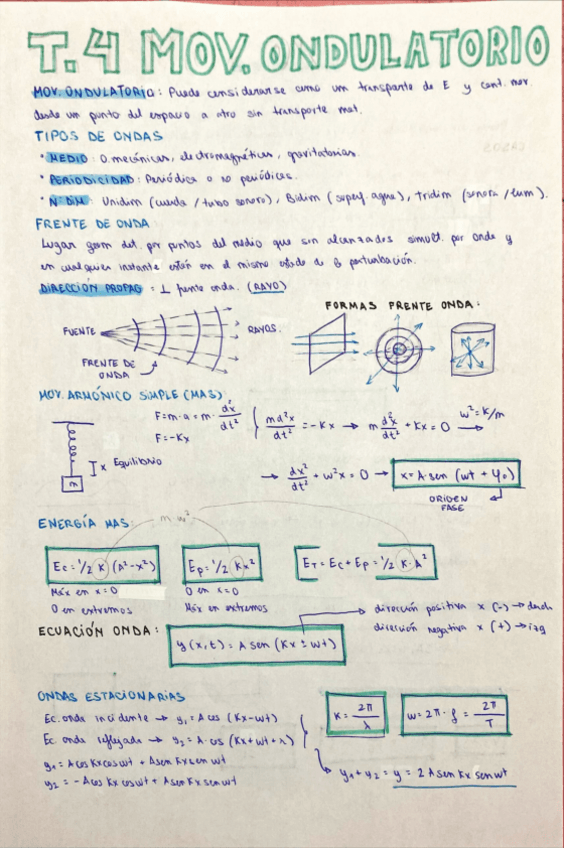 T.4 MOV. ONDULATORIO
MOV. ONDULATORIO: Puede considerarse como un transporte de E y cant. mov
desde un punto del espacio a otro sin transporte mat.
TIPOS DE ONDAS
· MEDIO: O. mecánicas, electromagnéticas, gravitatorias.
· PERIODICIDAD: Periódica o no periódicas.
· Nº DIM: Unidim (cuerda / tubo sonoro), Bidim (superf. agua), Tridim (sonora / lum).
FRENTE DE ONDA
Lugar geom det. por puntos del medio que son alcanzados simult. por onda y
en cualquier instante están en el mismo estado de perturbación.
DIRECCIÓN PROPAG = ⊥ frente onda. (RAYO)
FORMAS FRENTE ONDA:
FUENTE
RAYOS.
FRENTE DE ONDA
MOV. ARMÓNICO SIMPLE (MAS):
F=m·a = m· dx²/dt²
F=-Kx
md²x/dt² = -Kx → m d²x/dt² + Kx = 0 → w²=K/m
x Equilibrio
m
→ dx²/dt² + w²x = 0 → x = A·sen (wt + φ₀)
ORIGEN FASE
ENERGÍA MAS:
m·w²
Ec = 1/2 K (A²-x²)
Ep = 1/2 Kx²
ET = Ec + Ep = 1/2 K·A²
Máx en x=0
O en x=0
O en extremos
Máx en extremos
dirección positiva x (-) → dcha
dirección negativa x (+) → izq
ECUACIÓN ONDA:
y (x,t) = A sen (Kx ± wt)
ONDAS ESTACIONARIAS
K = 2π/λ
w = 2π·f = 2π/T
Ec. onda incidente → y₁ = A cos (Kx-wt)
Ec. onda reflejada → y₂ = A·cos (Kx+wt+π)
y₁ = A cos Kx cos wt + A sen Kx sen wt
y₂ = -A cos Kx cos wt + A sen Kx sen wt
y₁ + y₂ = y = 2 A sen Kx sen wt